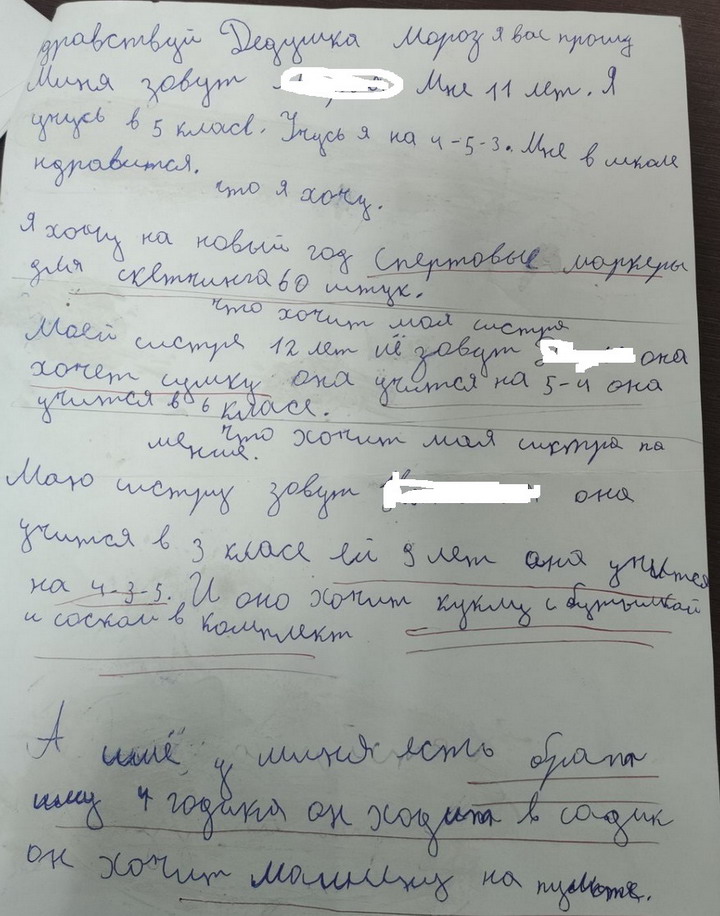 дравствуй Дедушка Мороз я вас прошу
Миня зовут Мне 11 лет. Я
учусь в 5 класв. Учусь я на 4-5-3. Мне в школе
ндравится.
что я хочу.
Я хочу на новый год спертовые маркеры
для скетчинга 60 штук.
что хочит моя систра
Моей систре 12 лет её зовут она
хочет сумку она учится на 5-4 она
учится в 6 класе.
что хочит моя систра па
менше.
Маю систру зовут она
учится в 3 класе ей 9 лет она учится
на 4-3-5. И оно хочит куклу с бутылкай
и соскай в комплект
А ишё у миня есть брат
иму 4 годика он ходит в садик
он хочит машинку на пульте.